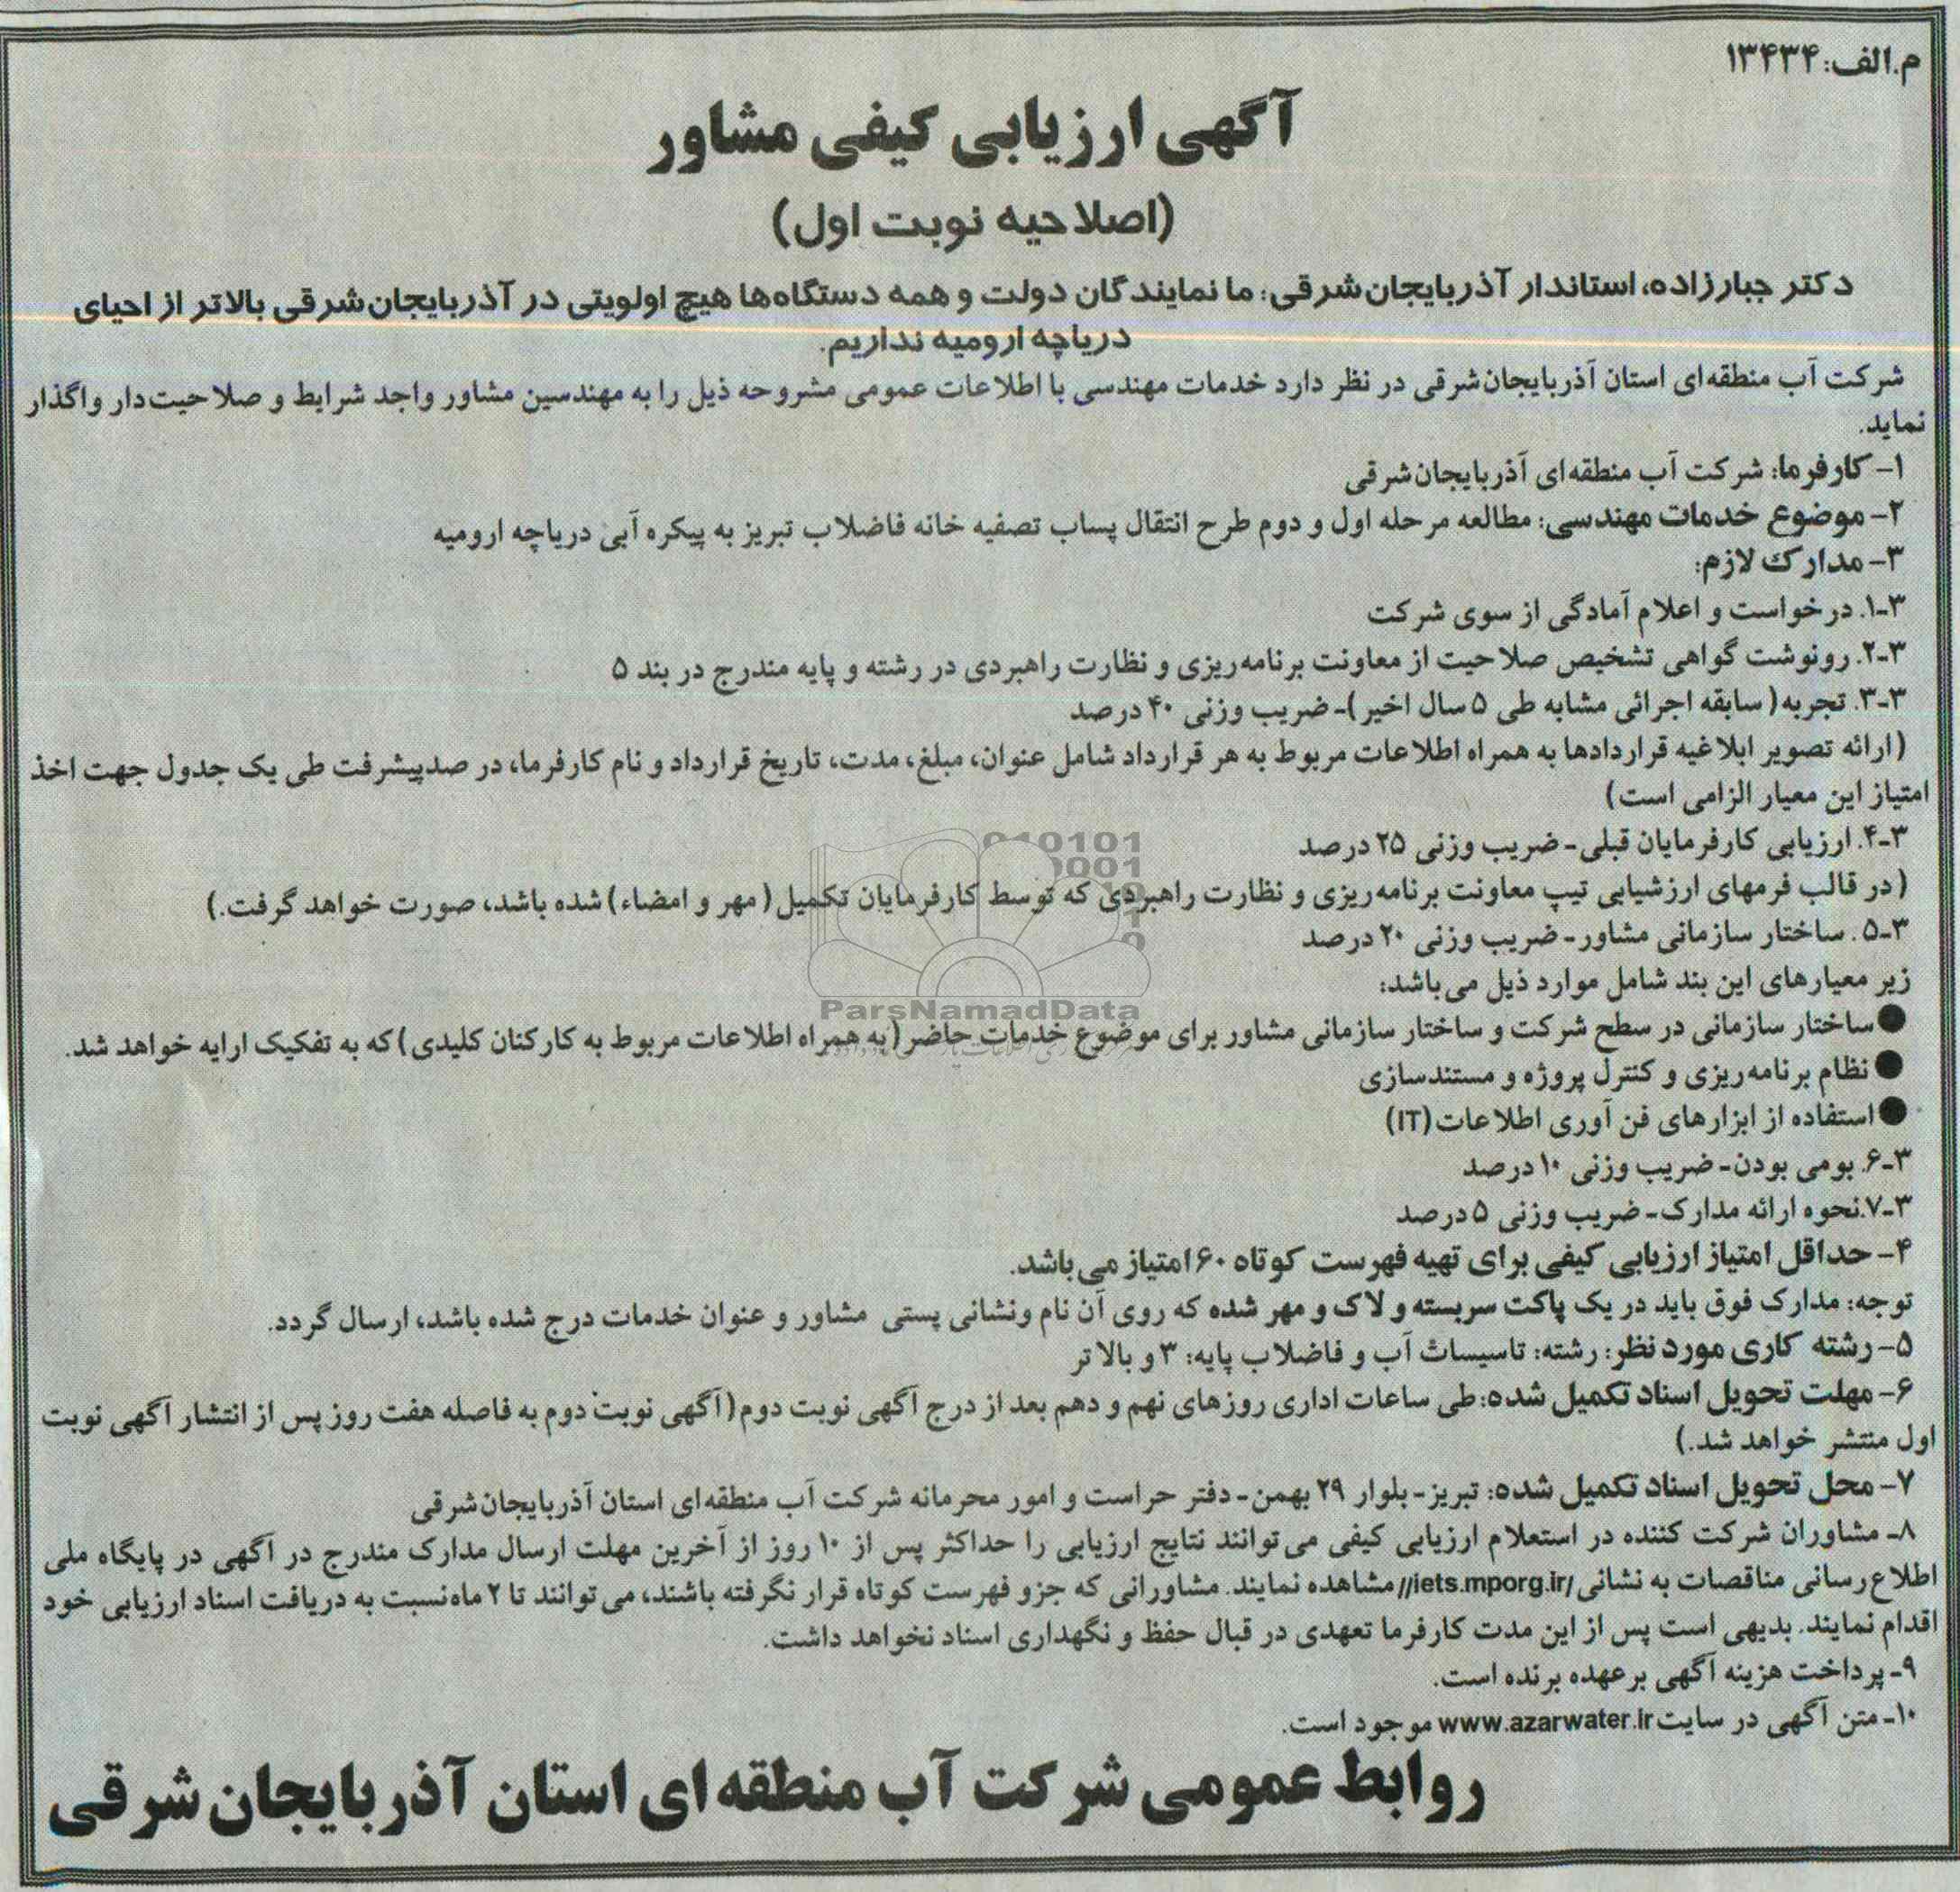 م.الف: ۱۳۴۳۴
آگهی ارزیابی کیفی مشاور
(اصلاحیه نوبت اول)
دکتر جبارزاده، استاندار آذربایجان‌شرقی: ما نمایندگان دولت و همه دستگاه‌ها هیچ اولویتی در آذربایجان‌شرقی بالاتر از احیای
دریاچه ارومیه نداریم.
شرکت آب منطقه‌ای استان آذربایجان‌شرقی در نظر دارد خدمات مهندسی با اطلاعات عمومی مشروحه ذیل را به مهندسین مشاور واجد شرایط و صلاحیت‌دار واگذار
نماید.
۱- کارفرما: شرکت آب منطقه‌ای آذربایجان‌شرقی
۲- موضوع خدمات مهندسی: مطالعه مرحله اول و دوم طرح انتقال پساب تصفیه خانه فاضلاب تبریز به پیکره آبی دریاچه ارومیه
۳- مدارک لازم:
۳-۱. درخواست و اعلام آمادگی از سوی شرکت
۳-۲. رونوشت گواهی تشخیص صلاحیت از معاونت برنامه‌ریزی و نظارت راهبردی در رشته و پایه مندرج در بند ۵
۳-۳. تجربه (سابقه اجرائی مشابه طی ۵ سال اخیر)- ضریب وزنی ۴۰ درصد
(ارائه تصویر ابلاغیه قراردادها به همراه اطلاعات مربوط به هر قرارداد شامل عنوان، مبلغ، مدت، تاریخ قرارداد و نام کارفرما، درصدپیشرفت طی یک جدول جهت اخذ
امتیاز این معیار الزامی است)
۳-۴. ارزیابی کارفرمایان قبلی- ضریب وزنی ۲۵ درصد
(در قالب فرمهای ارزشیابی تیپ معاونت برنامه‌ریزی و نظارت راهبردی که توسط کارفرمایان تکمیل (مهر و امضاء) شده باشد، صورت خواهد گرفت.)
۳-۵. ساختار سازمانی مشاور- ضریب وزنی ۲۰ درصد
زیر معیارهای این بند شامل موارد ذیل می‌باشد:
●ساختار سازمانی در سطح شرکت و ساختار سازمانی مشاور برای موضوع خدمات حاضر (به همراه اطلاعات مربوط به کارکنان کلیدی) که به تفکیک ارایه خواهد شد.
●نظام برنامه‌ریزی و کنترل پروژه و مستندسازی
●استفاده از ابزارهای فن آوری اطلاعات (IT)
۳-۶. بومی بودن- ضریب وزنی ۱۰ درصد
۳-۷. نحوه ارائه مدارک- ضریب وزنی ۵ درصد
۴- حداقل امتیاز ارزیابی کیفی برای تهیه فهرست کوتاه ۶۰ امتیاز می‌باشد.
توجه: مدارک فوق باید در یک پاکت سربسته و لاک و مهر شده که روی آن نام ونشانی پستی مشاور و عنوان خدمات درج شده باشد، ارسال گردد.
۵- رشته کاری مورد نظر: رشته: تاسیسات آب و فاضلاب پایه: ۳ و بالاتر
۶- مهلت تحویل اسناد تکمیل شده: طی ساعات اداری روزهای نهم و دهم بعد از درج آگهی نوبت دوم (آگهی نوبت دوم به فاصله هفت روز پس از انتشار آگهی نوبت
اول منتشر خواهد شد.)
۷- محل تحویل اسناد تکمیل شده: تبریز- بلوار ۲۹ بهمن- دفتر حراست و امور محرمانه شرکت آب منطقه‌ای استان آذربایجان‌شرقی
۸- مشاوران شرکت کننده در استعلام ارزیابی کیفی می‌توانند نتایج ارزیابی را حداکثر پس از ۱۰ روز از آخرین مهلت ارسال مدارک مندرج در آگهی در پایگاه ملی
اطلاع‌رسانی مناقصات به نشانی //iets.mporg.ir/ مشاهده نمایند. مشاورانی که جزو فهرست کوتاه قرار نگرفته باشند، می‌توانند تا ۲ ماه‌نسبت به دریافت اسناد ارزیابی خود
اقدام نمایند. بدیهی است پس از این مدت کارفرما تعهدی در قبال حفظ و نگهداری اسناد نخواهد داشت.
۹- پرداخت هزینه آگهی برعهده برنده است.
۱۰- متن آگهی در سایت www.azarwater.ir موجود است.
روابط عمومی شرکت آب منطقه‌ای استان آذربایجان شرقی
ParsNamadData